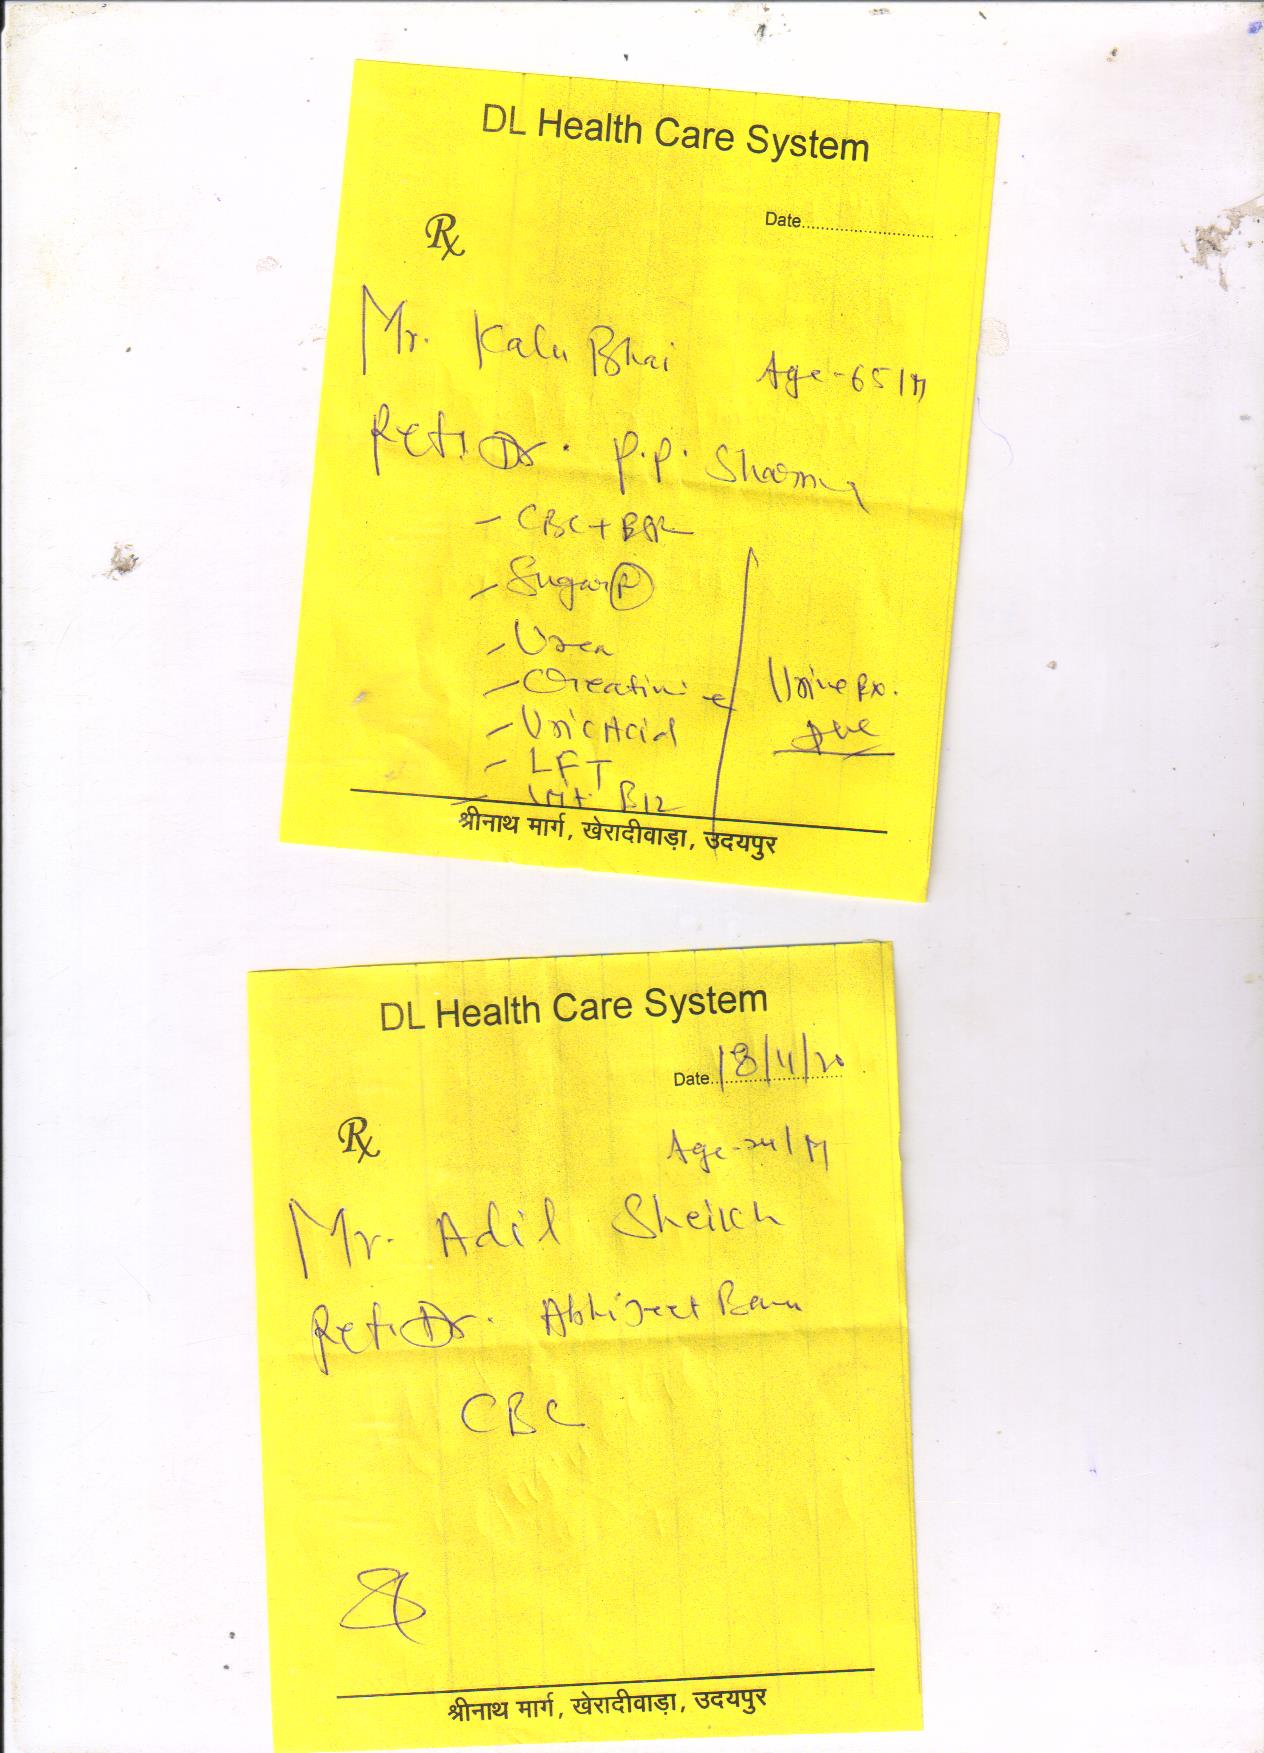 DL Health Care System
Date..............................
Rx
Mr. Kalu Bhai Age-65/M
Ref: Dr. P.P. Sharma
- CBC +
- Sugar (R)
- Urea
- Creatini e
- Uric Acid
- LFT
- Vit B12
Urine Rx.
Due
श्रीनाथ मार्ग, खेरादीवाड़ा, उदयपुर
DL Health Care System
Date 18/4/20
Rx
Age-24/M
Mr. Adil Sheikh
Ref: Dr. Abhijeet
CBC
श्रीनाथ मार्ग, खेरादीवाड़ा, उदयपुर